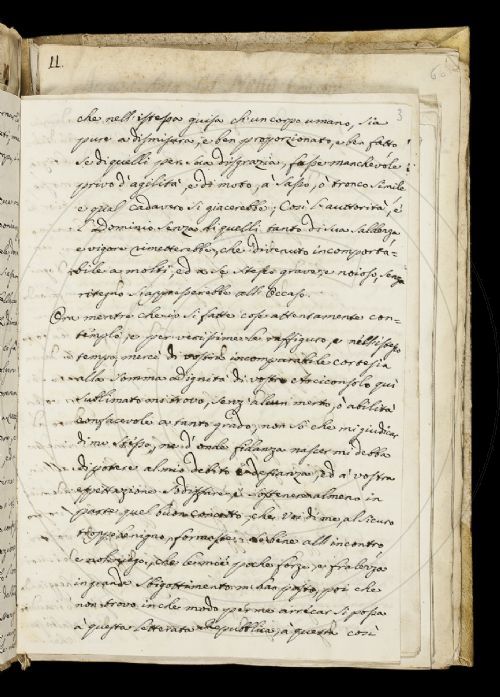 11.
3
che nell'istessa guisa ch'un corpo umano, sia
pure a dismisura, e ben proporzionato, e ben fatto
se di quelli per sua disgrazia, fusse manchevole
privo d'agilità, e di moto, à sasso, ò tronco simile
e qual cadavero si giacerebbe; Così l'autorità, e
il Dominio senza di quelli tanto di sua saldezza
e vigore rimetterebbe, che divenuto incomporta-
bile a molti, ed a se stesso grave, e noioso, senza
ritegno s'appresserebbe all'Occaso.
Ora mentre ch'io sì fatte cose attentamente con-
templo, e per verissime le raffiguro, e nell'istesso
tempo, mercè di vostra incomparabile cortesia
alla somma dignità di vostro Arciconsolo qui
sublimato mi trovo, senz'alcun merto, ò abilità
confacevole a tanto grado; non sò che mi giudicar
di me stesso, nè d'onde fidanza nascer mi debba
di potere al mio debito, ed à vostra
espettazione sodisfare, e sostener almeno in
parte quel buon concetto, che Voi di me, al sicuro
troppo benigno, formaste: e bene all'incontro
conosco, che le mie poche forze, e fralezza
in grande sbigottimento m'han posto, poi che
non trovo in che modo per me arrecar si possa
à questa letterata Repubblica, à questa così